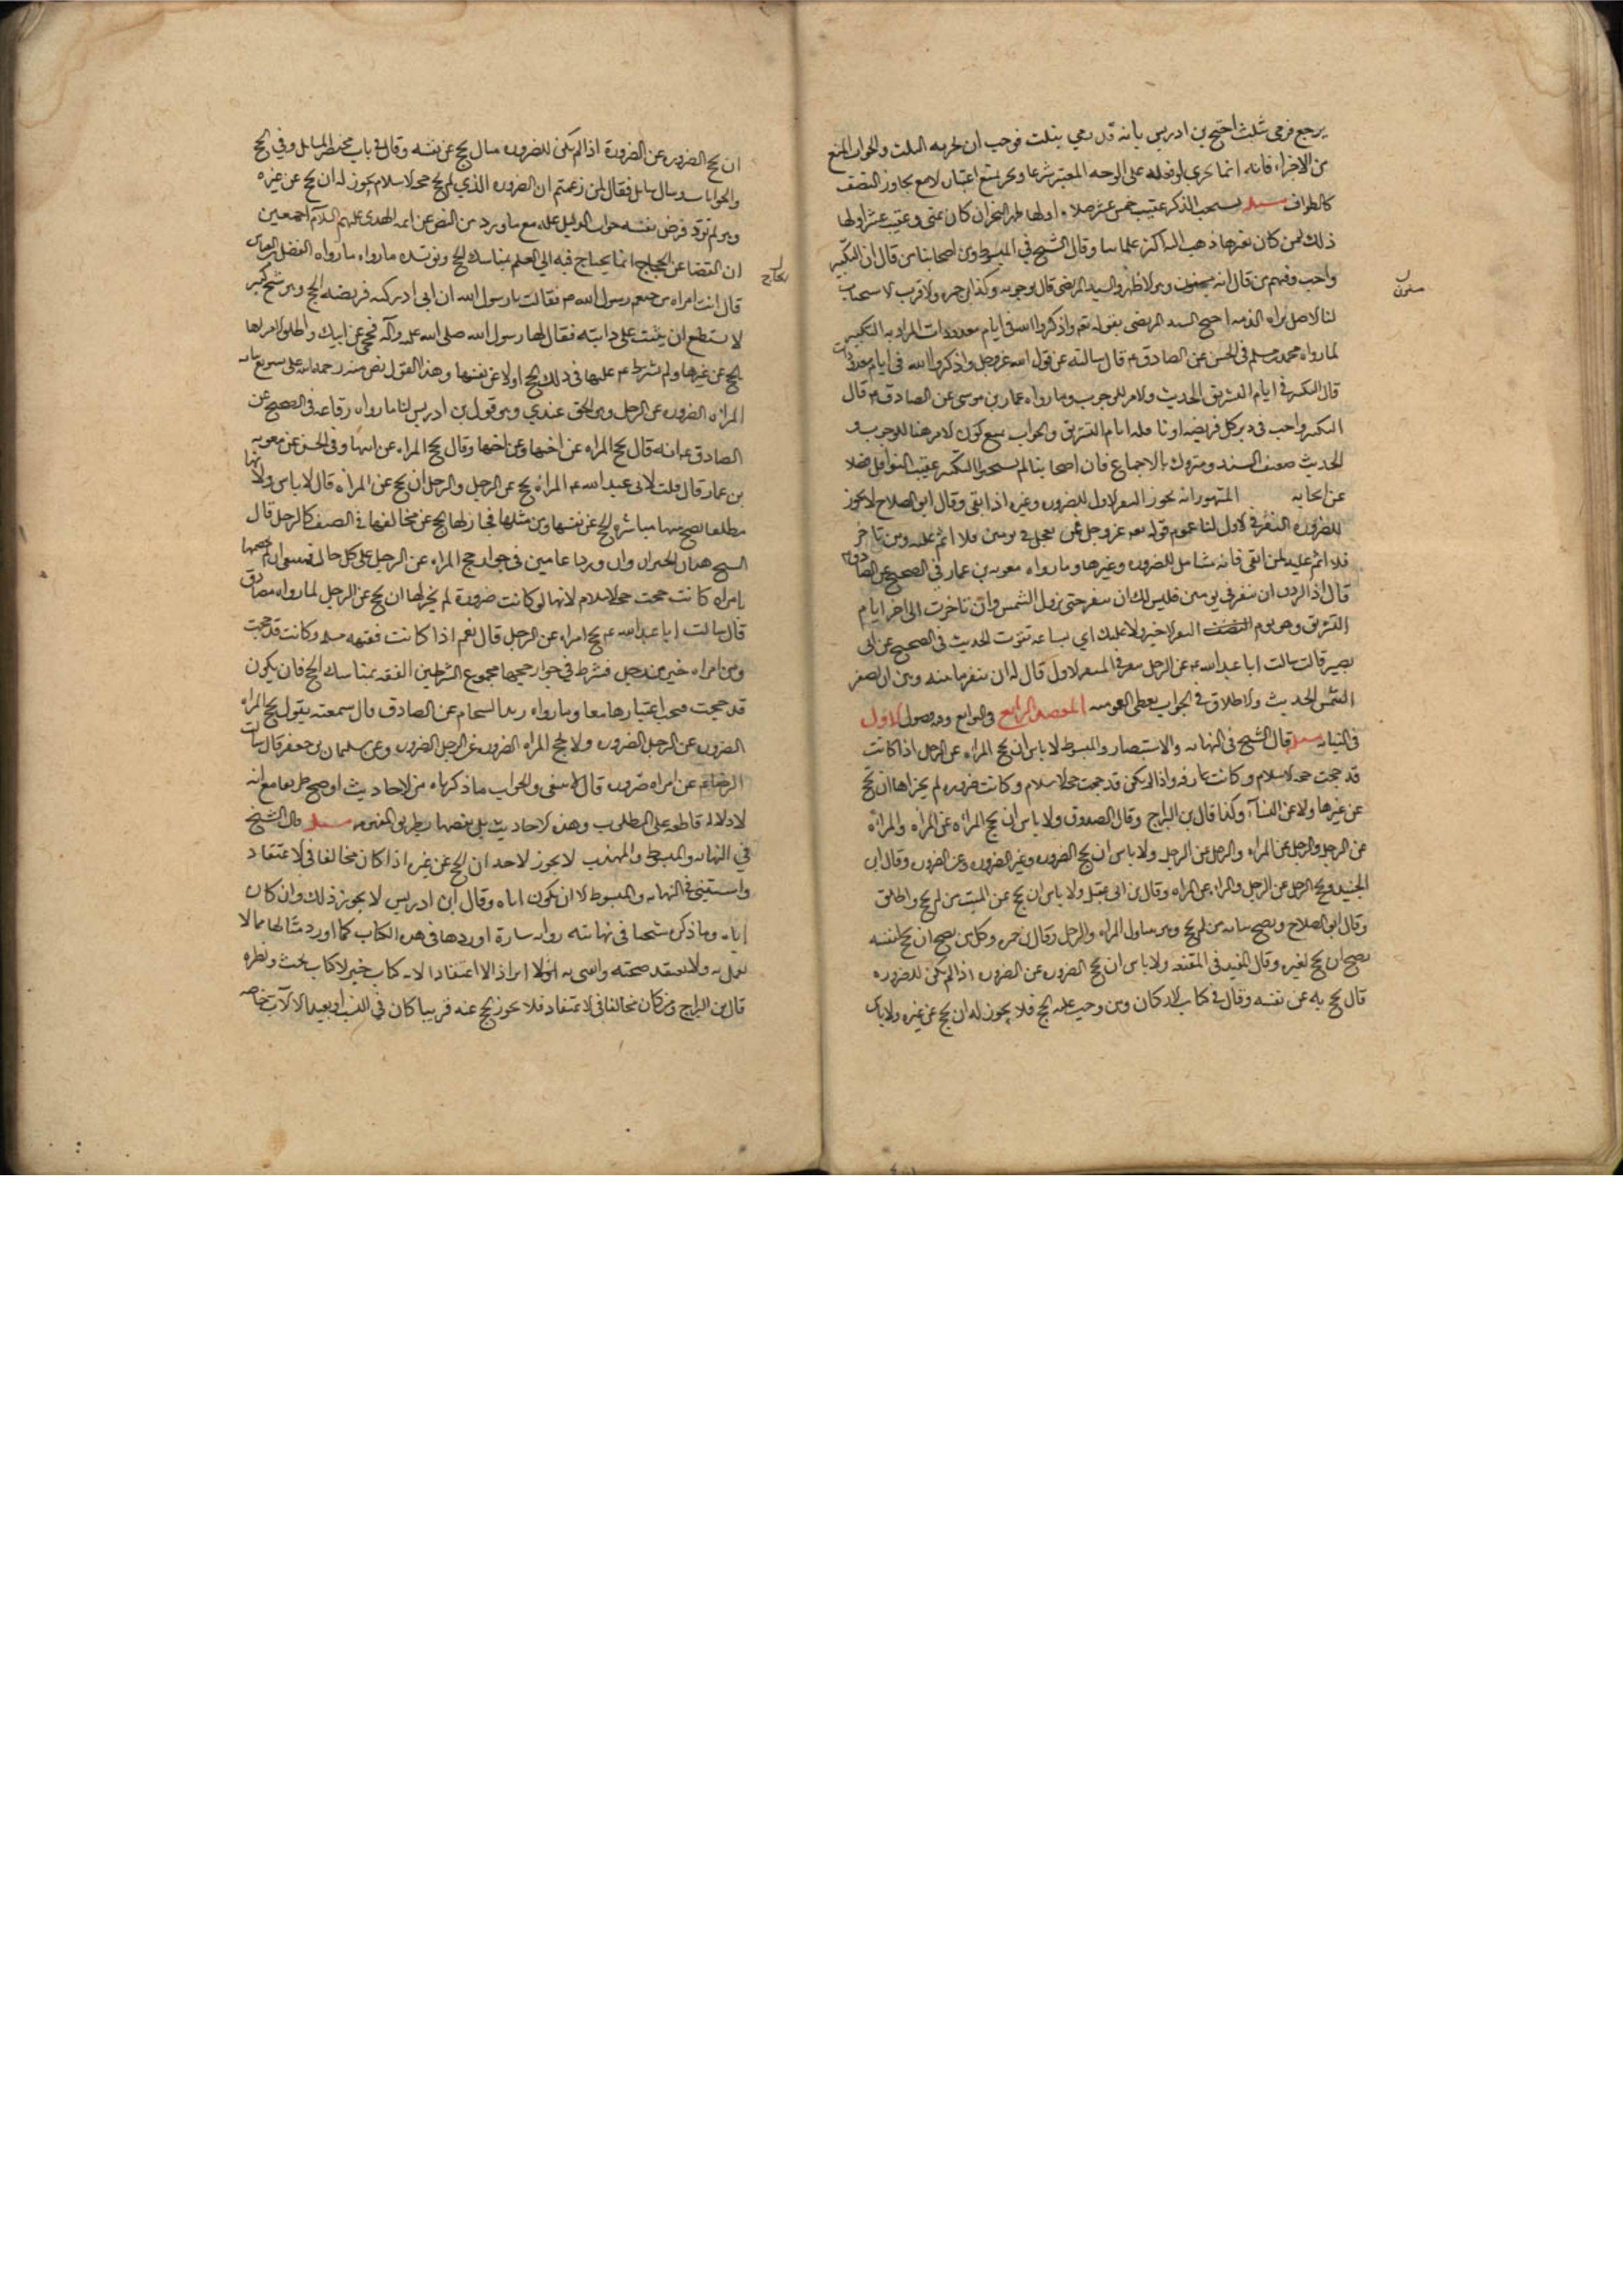 يرجع فرمى بثلث احتج بن ادريس بانه قد رمى بثلث فوجب ان يجزيه الثلث والجواب المنع
من الاجزاء فانه انما يجزي لو فعله على الوجه المعتبر شرعا ونحن نمنع اعتبار لا مع تجاوز النصف
كالطواف مسئله يستحب الذكر عقيب خمس عشر صلاه اولها ظهر النحر ان كان بمنى وعقيب عشر اولها
ذلك لمن كان بغيرها ذهب اليه اكثر علمائنا وقال الشيخ في المبسوط ومن اصحابنا من قال ان التكبير
واجب ومنهم من قال انه مسنون وهو الاظهر والسيد المرتضى قال بوجوبه وكذا بن حمزه والاقرب الاستحباب
مسنون
لنا الاصل براه الذمه احتج السيد المرتضى بقوله تعم واذكروا الله في ايام معدودات المراد به التكبير
لما رواه محمد بن مسلم في الحسن عن الصادق ع قال سالته عن قول الله عز وجل واذكروا الله في ايام معدودات
قال التكبير في ايام التشريق الحديث والامر للوجوب وما رواه عمار بن موسى عن الصادق ع قال
التكبير واجب في دبر كل فريضه او نافله ايام التشريق والجواب نمنع كون الامر هنا للوجوب و
الحديث ضعيف السند ومتروك بالاجماع فان اصحابنا لم يستحبوا التكبير عقيب النوافل فضلا
عن ايجابه المشهور انه يجوز النفر الاول للضروره وغيره اذا اتقى وقال ابو الصلاح لا يجوز
للضروره النفر في الاول لنا عموم قوله تعم عز وجل فمن تعجل في يومين فلا اثم عليه ومن تاخر
فلا اثم عليه لمن اتقى فانه شامل للضروره وغيرها وما رواه معويه بن عمار في الصحيح عن الصادق ع
قال اذا اردت ان تنفر في يومين فليس لك ان تنفر حتى تزول الشمس وان تاخرت الى اخر ايام
التشريق وهو يوم النفر الاخير فلا عليك اي ساعه نفرت الحديث في الصحيح عن ابي
بصير قالت سالت ابا عبد الله ع عن الرجل ينفر في النفر الاول قال له ان ينفر ما بينه وبين ان تصفر
الشمس الحديث والاطلاق في الجواب يعطى العموم المقصد الرابع في التوابع وفيه فصول الاول
في النيابه مسئله قال الشيخ في النهايه والاستبصار والمبسوط لا باس ان تحج المراه عن الرجل اذا كانت
قد حجت حجه الاسلام وكانت عارفه واذا لم يكن قد حجت حجه الاسلام وكانت ضروره لم يجز لها ان تحج
عن غيرها ولا عن النساء وكذا قال بن البراج وقال الصدوق ولا باس ان تحج المراه عن المراه والمراه
عن الرجل والرجل عن المراه والرجل عن الرجل ولا باس ان يحج الضروره وغير الضروره عن الضروره وقال ابن
الجنيد ويحج الرجل عن الرجل والمراه عن المراه وقال بن ابي عقيل ولا باس ان يحج عن الميت من لم يحج واطلق
وقال ابو الصلاح ويصح نيابه من لم يحج وهو يتناول المراه والرجل وقال بن حمزه وكل من يصح ان يحج لنفسه
يصح ان يحج لغيره وقال المفيد في المقنعه ولا باس ان يحج الضروره عن الضروره اذا لم يكن للضروره
قال يحج به عن نفسه وقال في كتاب الاركان ومن وجب عليه الحج فلا يجوز له ان يحج عن غيره ولا باس
ان يحج الضروره عن الضرورة اذا لم يكن للضروره مال يحج عن نفسه وقال في باب مختصر المسائل وفي الحج
والجوابات وسال سايل فقال لمن زعمتم ان الضروره الذي لم يحج حجه الاسلام يجوز له ان يحج عن غيره
وهو لم يؤد فرض نفسه جواب الدليل عليه مع ما ورد من النص عن ائمه الهدى عليهم السلام اجمعين
ان القضا عن الحجاج انما يحتاج فيه الى العلم بمناسك الحج ويؤيده ما رواه ما رواه الفضل بن العباس
يحتاج
قال اتت امراه من خثعم رسول الله ص فقالت يا رسول الله ان ابي ادركته فريضه الحج وهو شيخ كبير
لا يستطع ان يثبت على دابته فقال لها رسول الله صلى الله عليه وآله فحجي عن ابيك واطلق الامر لها
بالحج عن غيرها ولم يشرط ع عليها في ذلك الحج اولا عن نفسها وهذا القول نص منه رحمه الله على تسويغ نيابه
المراه الضروره عن الرجل وهو الحق عندي وهو قول بن ادريس لنا ما رواه رفاعه في الصحيح عن
الصادق ع انه قال تحج المراه عن اختها وعن اخيها وقال تحج المراه عن ابنها وفي الحسن عن معويه
بن عمار قال قلت لابي عبد الله ع المراه تحج عن الرجل والرجل ان يحج عن المراه قال لا باس ولانها
مطلقا يصح منها مباشره الحج عن نفسها وعن مثلها فجاز لها الحج عن مخالفها في الصنف كالرجل قال
الشيخ هذان الخبران وان وردا عامين في جواز حج المراه عن الرجل على كل حال فينبغي ان نخصهما
بامراه كانت حجت حجه الاسلام لانها لو كانت ضرورة لم يجز لها ان تحج عن الرجل لما رواه مصادق
قال سالت ابا عبد الله ع تحج امراه عن الرجل قال نعم اذا كانت فقيهه مسلمه وكانت قد حجت
ومن امراه خير من رجل فشرط في جواز حجها مجموع الشرطين الفقه بمناسك الحج فان يكون
قد حجت فيجب اعتبارهما معا وما رواه زيد الشحام عن الصادق قال سمعته يقول يحج المراه
الضروره عن الرجل الضروره ولا تحج المراه الضروره عن الرجل الضروره وعن سليمان بن جعفر قال سالت
الرضا ع عن امراه ضروره قال لا ينبغي والجواب ما ذكرناه من الاحاديث اوضح طريقا مع انه
لا دلاله قاطعه على المطلوب وهذه الاحاديث بل بعضها بطريق المفهوم مسئله قال الشيخ
في النهايه والمبسوط والمهذب لا يجوز لاحد ان يحج عن غيره اذا كان مخالفا في الاعتقاد
واستثنى في النهايه والمبسوط الا ان يكون اباه وقال ابن ادريس لا يجوز ذلك وان كان
اباه وما ذكره شيخنا في نهايته روايه شاذه اوردها في هذا الكتاب كما اورد امثالها مما لا
يعمل به ولا يعتقد صحته وافتى به ايرادا لا اعتقادا لانه كتاب خبر لا كتاب بحث ونظره
قال بن البراج ومن كان مخالفا في الاعتقاد فلا يجوز الحج عنه قريبا كان في النسب او بعيدا الا الاب خاصه